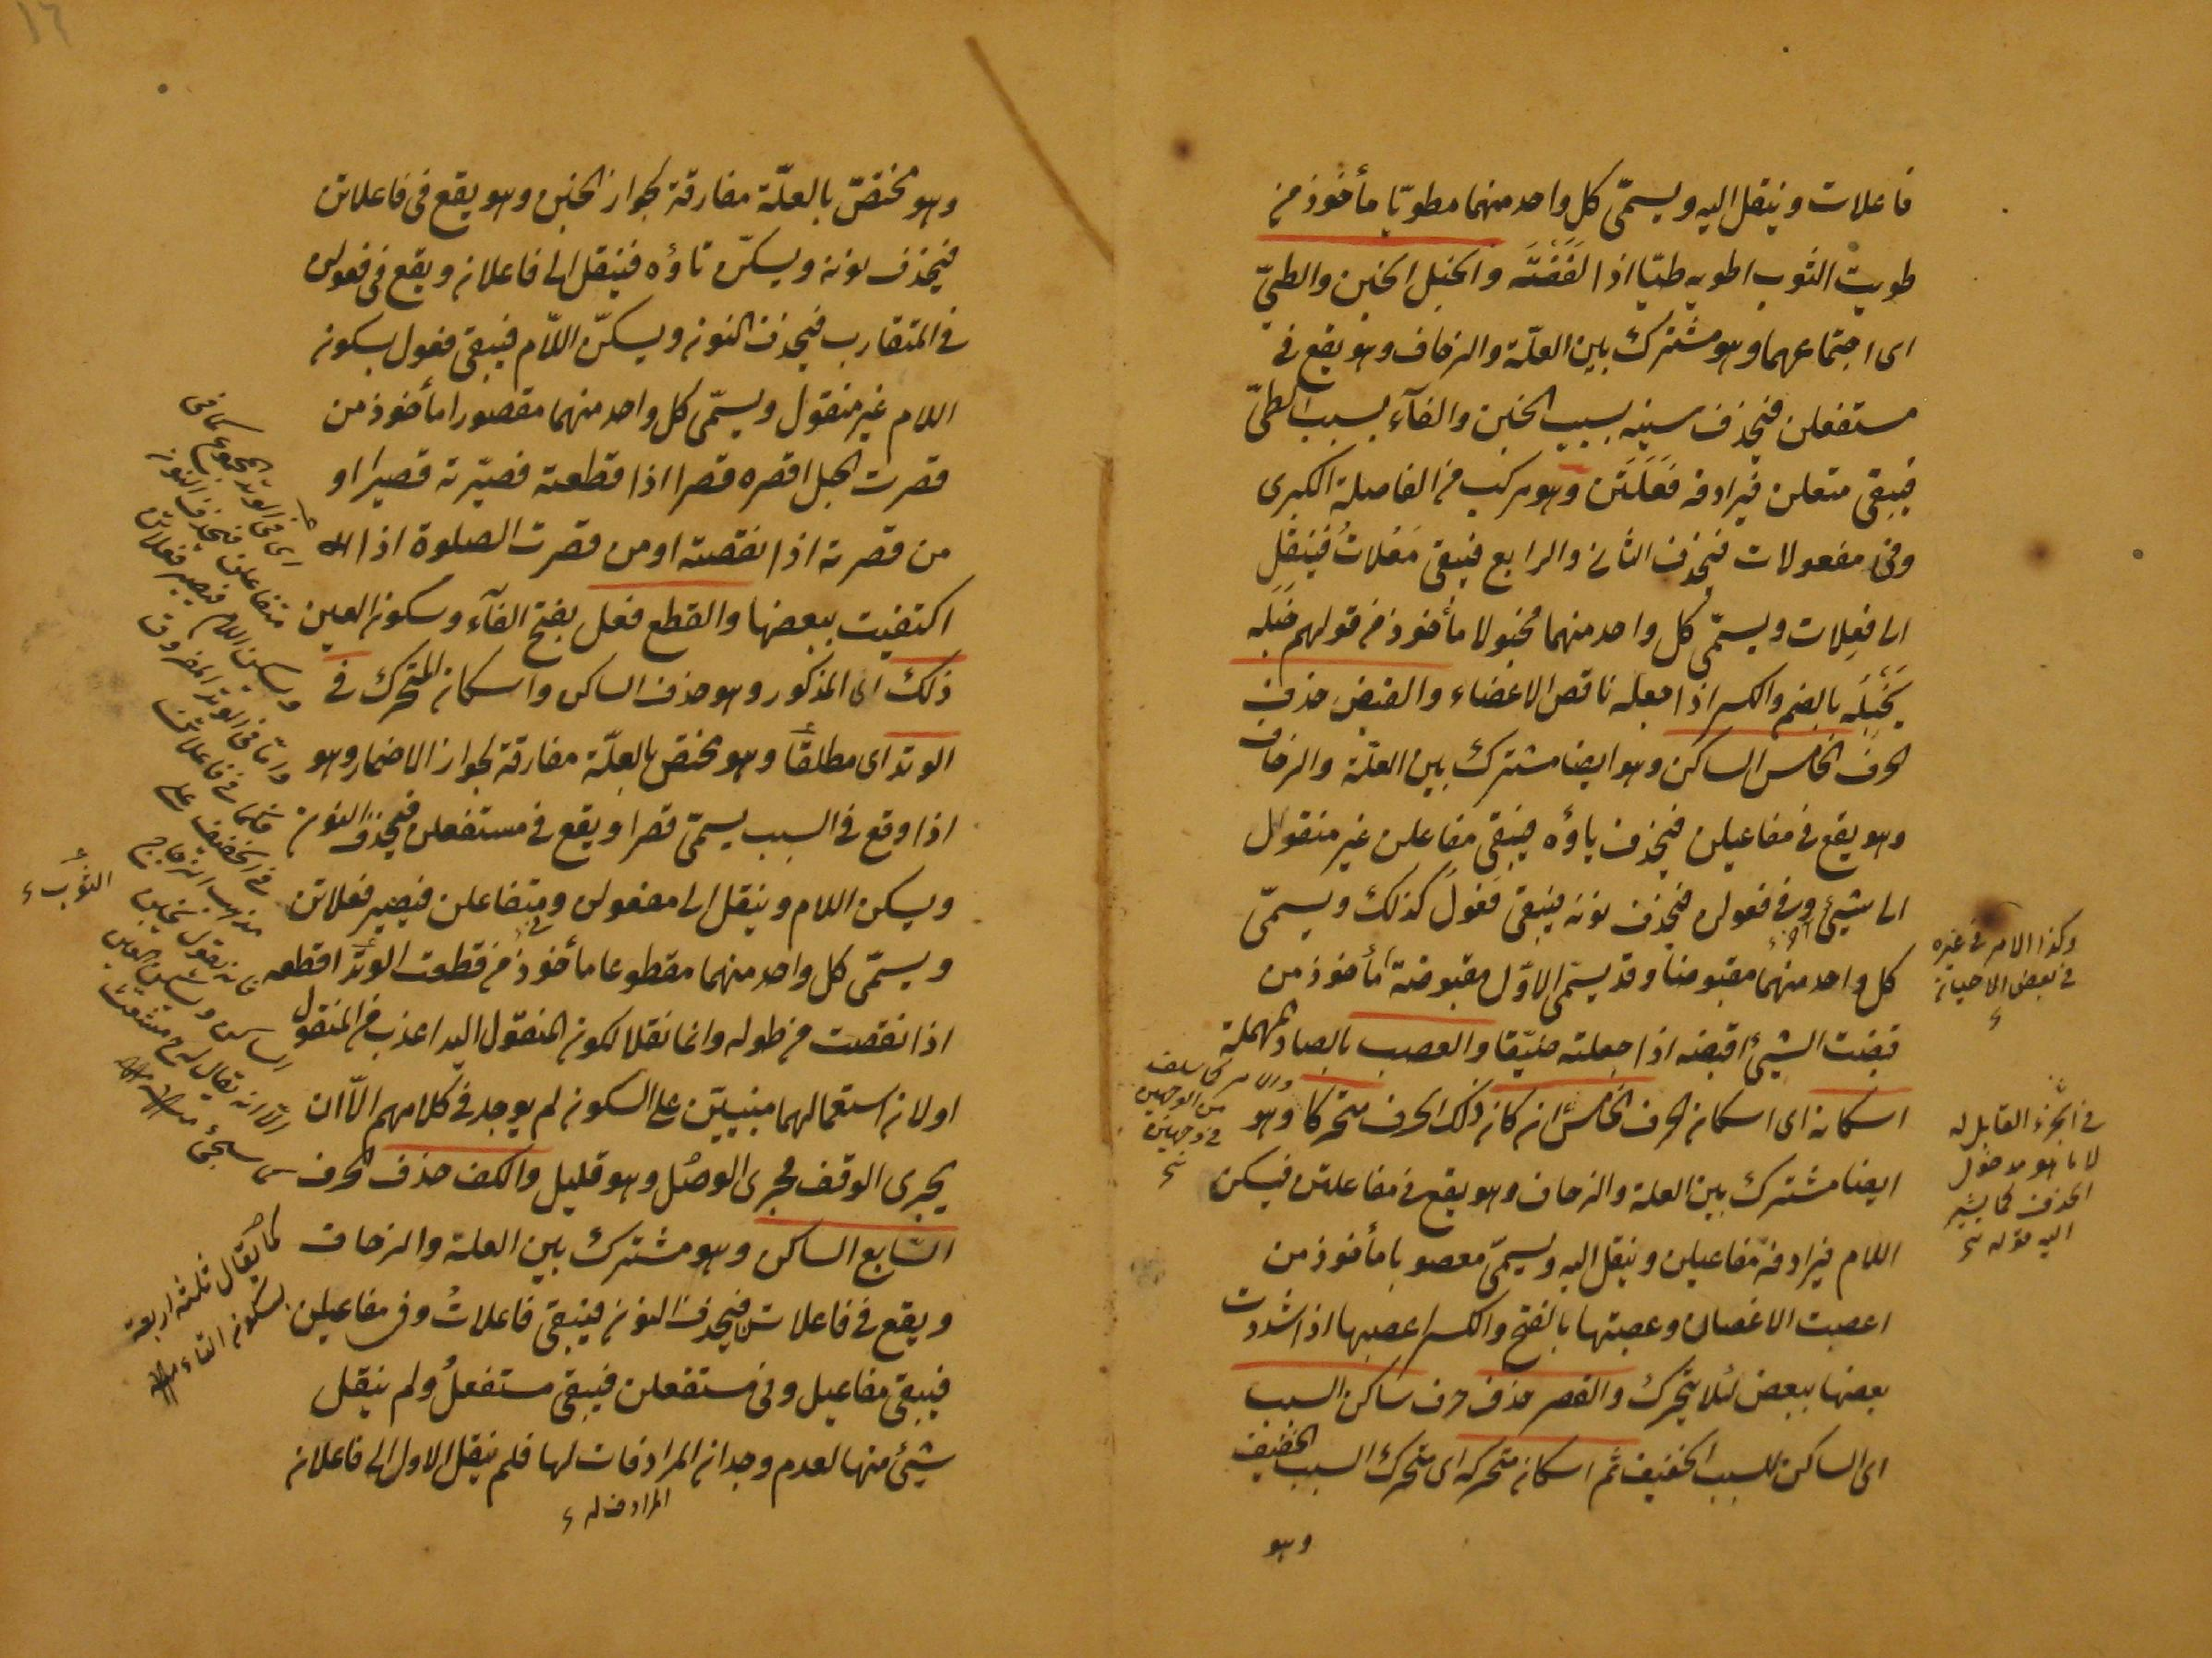 فاعلات وينقل اليه ويسمّى كل واحد منهما مطويّا مأخوذ من
طويت الثوب اطويه طيّا اذا لففته والخبل الخبن والطيّ
اى اجتماعهما وهو مشترك بين العلّة والزحاف وهو يقع فى
مستفعلن فيحذف سينه بسبب الخبن والفآء بسبب الطىّ
فيبقى متعلن فيرادفه فَعَلَتُن وهو مركب من الفاصلة الكبرى
وفى مفعولات فيحذف الثانى والرابع فيبقى مَعُلاتُ فينقل
الى فعِلات ويسمّى كل واحد منهما مخبولا مأخوذ من قولهم خبَله
يَخبُله بالضم والكسر اذا جعله ناقص الاعضاء والقبض حذف
الحرف الخامس الساكن وهو ايضا مشترك بين العلّة والزحاف
وهو يقع فى مفاعيلن فيحذف ياؤه فيبقى مفاعلن غير منقول
الى شيئ وفى فعولن فيحذف نونه فيبقى فعولُ كذلك ويسمّى
كل واحد منهما مقبوضا وقد يسمّى الاوّل مقبوضة مأخوذ من
قبضت الشيئ اقبضه اذا جعلته ضيّقا والعصب بالصاد المهملة
اسكانه اى اسكان الحرف الخامس ان كان ذلك الحرف متحركا وهو
ايضا مشترك بين العلة والزحاف وهو يقع فى مفاعلتن فيسكن
اللام فيرادفه مفاعيلن وينقل اليه ويسمّى معصوبا مأخوذ من
اعصبت الاغصان وعصبتها بالفتح والكسر اعصبها اذا شددت
بعضها ببعض لئلا يتحرك والقصر حذف حرف ساكن السبب
اى الساكن للسبب الخفيف ثم اسكان متحركه اى متحرك السبب الخفيف
وهو
وكذا الامر فى غيره
فى بعض الاحيان
فى الجزء القابل له
لا ما هو مدخول
الحذف كما يشير
اليه قوله
والامر كما سلف
من الوجهين
فى وجهين
١٦
وهو مختصّ بالعلّة مفارقة لجواز الخبن وهو يقع فى فاعلاتن
فيحذف نونه ويسكّن تاؤه فينقل الى فاعلان ويقع فى فعولن
فى المتقارب فيحذف النون ويسكّن اللّام فيبقى فعول بسكون
اللام غير منقول ويسمّى كل واحد منهما مقصورا مأخوذ من
قصرت الحبل اقصره قصرا اذا قطعته فصيّرته قصيرا او
من قصرته اذا نقصته او من قصرت الصلوة اذا
اكتفيت ببعضها والقطع فعل بفتح الفآء وسكون العين
ذلك اى المذكور وهو حذف الساكن واسكان المتحرك فى
الوتد اى مطلقًا وهو مختص بالعلّة مفارقة لجواز الاضمار وهو
اذا وقع فى السبب يسمّى قصرا ويقع فى مستفعلن فيحذف النون
ويسكن اللام وينقل الى مفعولن ومتفاعلن فيصير فعلاتن
ويسمّى كل واحد منهما مقطوعا مأخوذ من قطعت الوتد اقطعه
اذا نقصت من طوله وانما نقلا لكون المنقول اليه اعذب من المنقول
او لان استعمالهما مبنييّن على السكون لم يوجد فى كلامهم الّا ان
يجرى الوقف مجرى الوصل وهو قليل والكف حذف الحرف
السّابع الساكن وهو مشترك بين العلة والزحاف
ويقع فى فاعلاتن فيحذف النون فيبقى فاعلاتُ وفى مفاعيلن
فيبقى مفاعيل وفى مستفعلن فيبقى مستفعلُ ولم ينقل
شيئ منها لعدم وجدان المرادفات لها فلم ينقل الاول الى فاعلان
المرادف له
اى فى الوتد المجموع كما فى
متفاعلن فيحذف النون
ويسكن اللام فيصير فعلاتن
وامّا فى الوتد المفروق
فكما فى فاعلاتن
فى الخفيف على
مذهب الزجاج
فانه يقول بخبن
الساكن ويسكن العين
الّا انه يقال له مشعث
كما سيجئ
الثوب
كما يُقال ثلثه اربعة
بسكون التاء